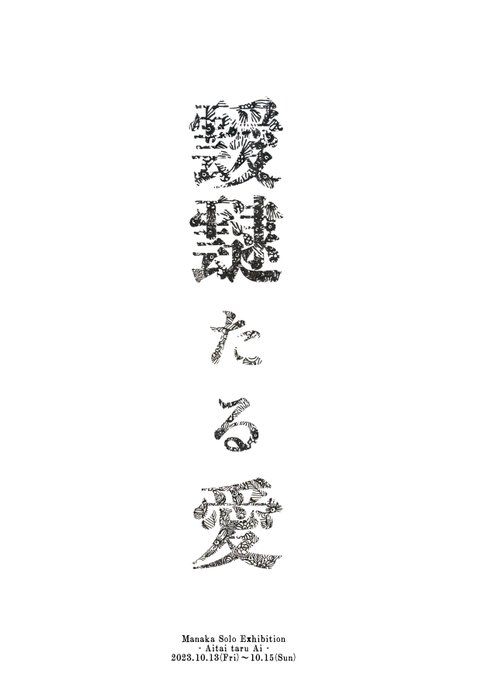 靉靆たる愛
Manaka Solo Exhibition
- Aitai taru Ai -
2023.10.13(Fri)～10.15(Sun)